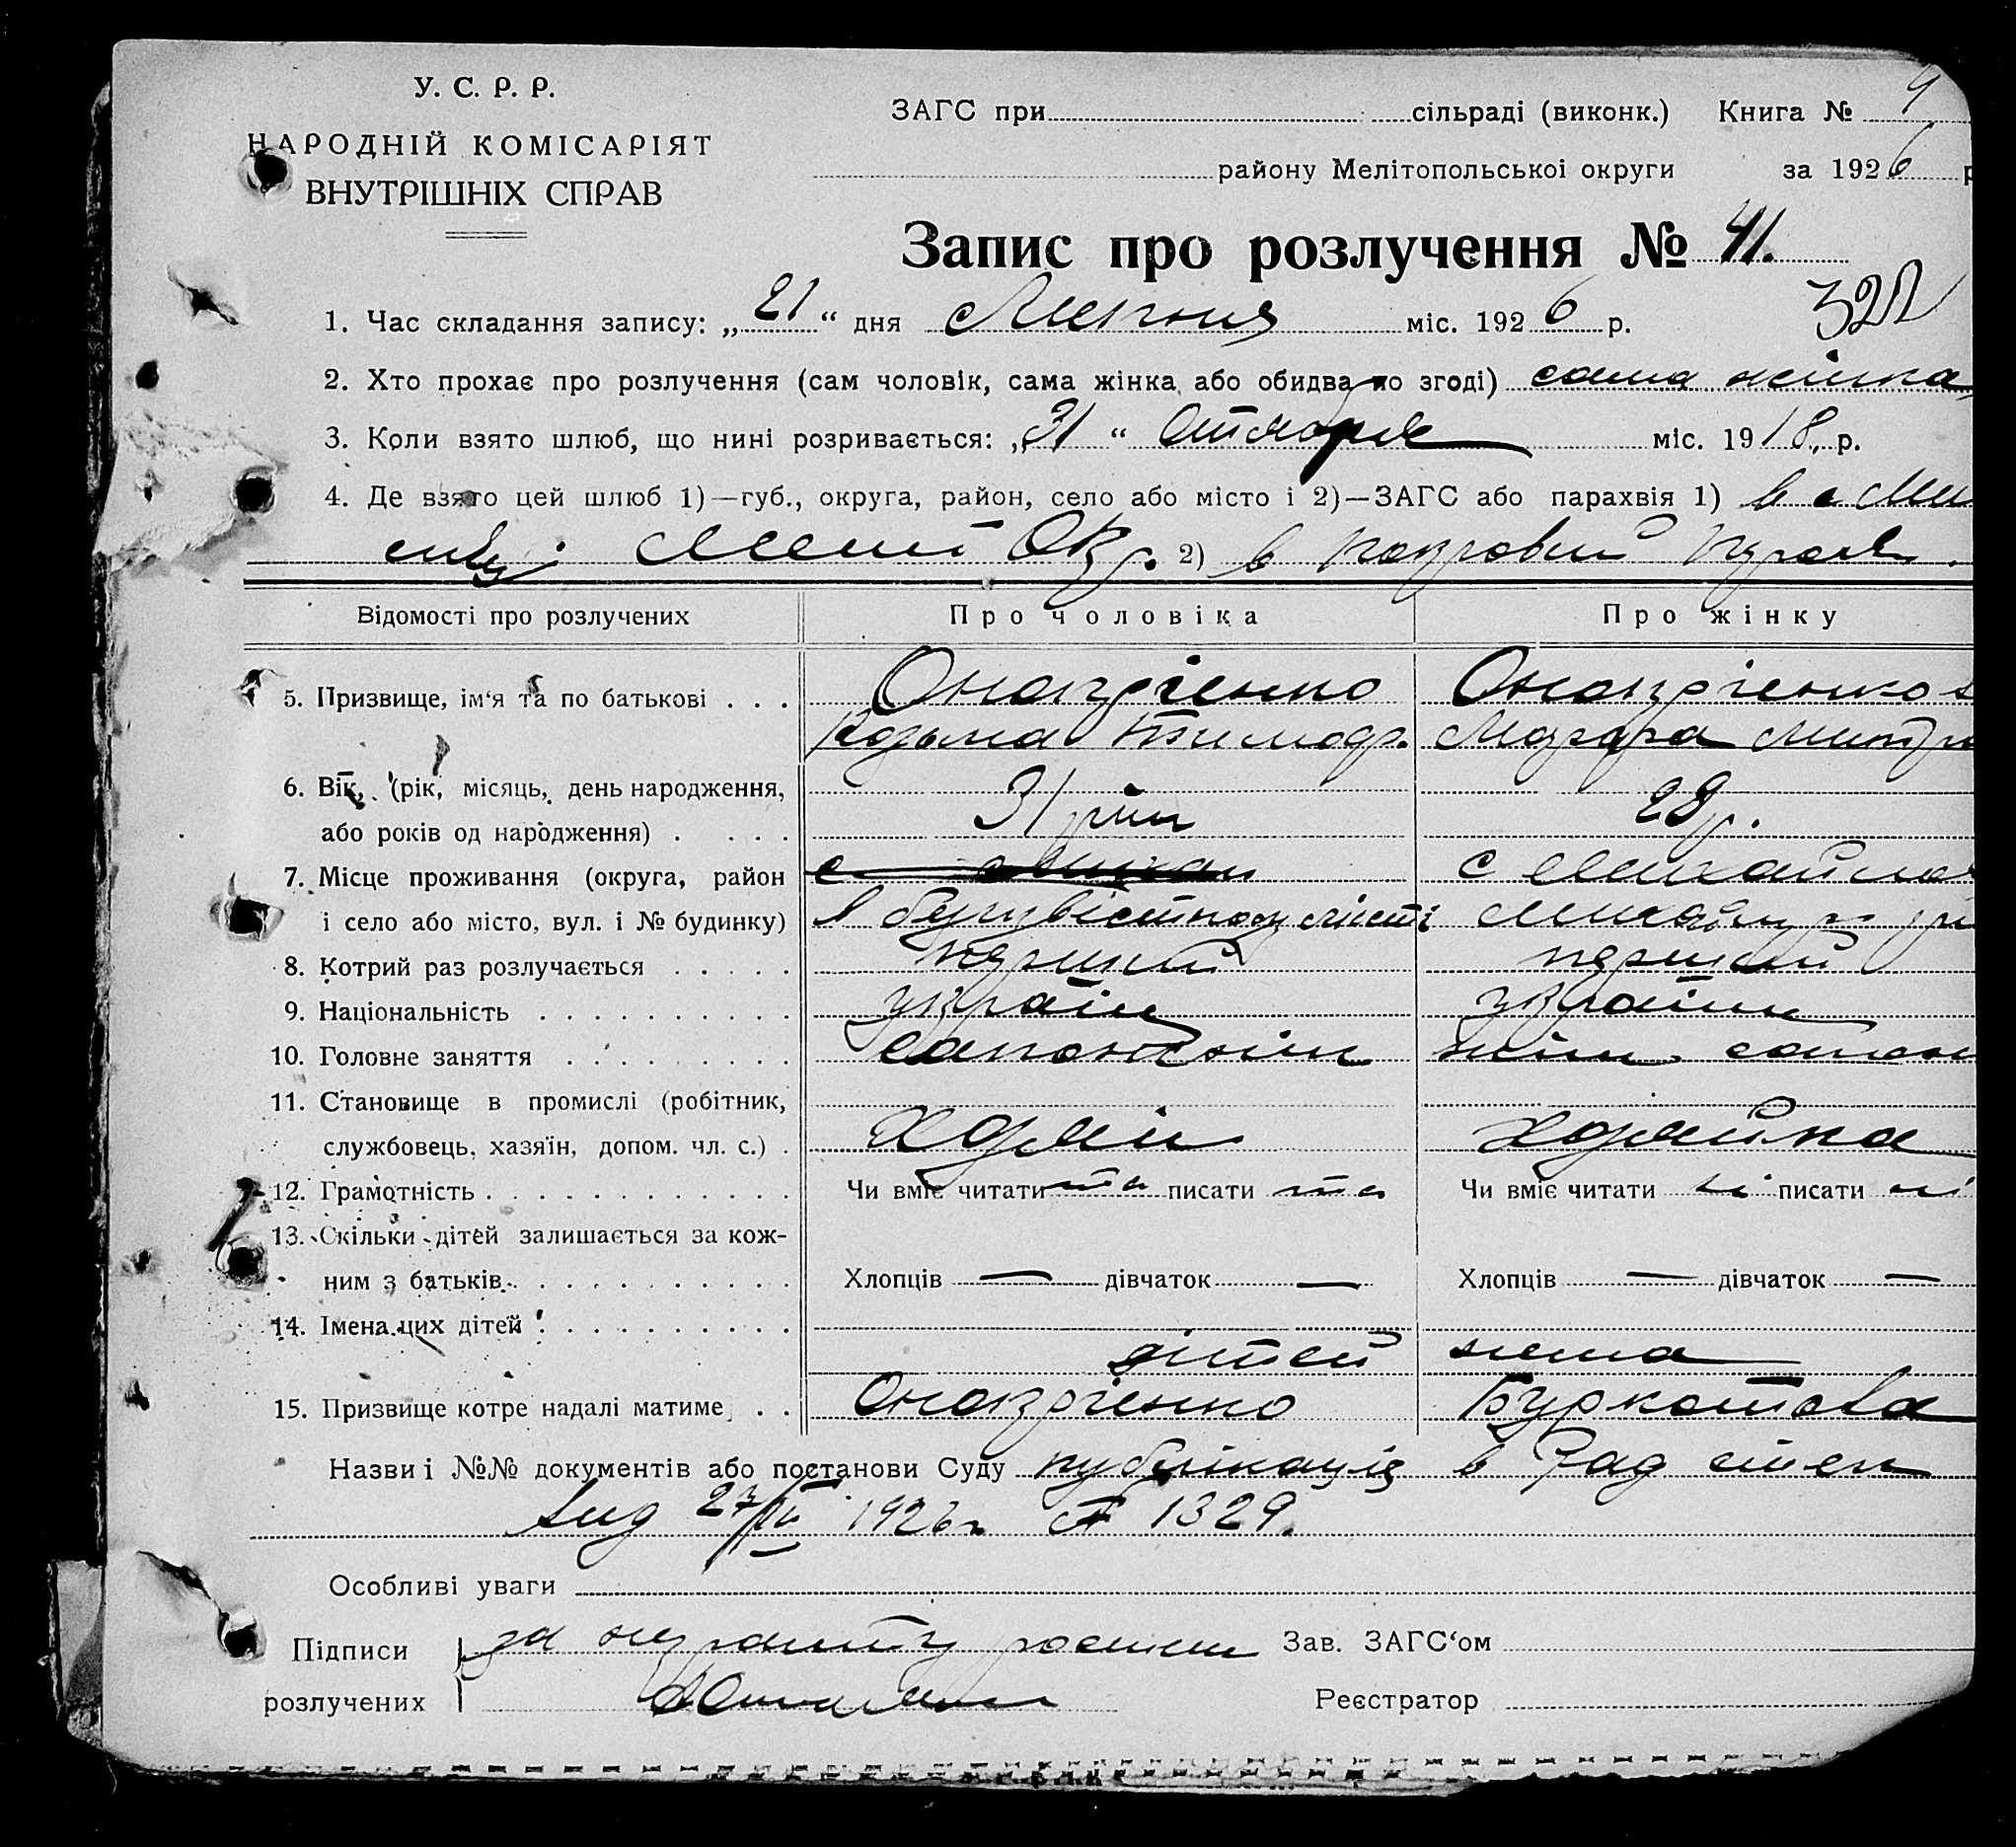 У. С. Р. Р.
НАРОДНІЙ КОМІСАРІЯТ
ВНУТРІШНІХ СПРАВ
ЗАГС при сільраді (виконк.) Книга № 9
району Мелітопольської округи за 1926 р
Запис про розлучення № 41.
322
1. Час складання запису: „ 21 “ дня Липня міс. 1926 р.
2. Хто прохає про розлучення (сам чоловік, сама жінка або обидва по згоді) сама жінка
3. Коли взято шлюб, що нині розривається: „ 31 “ Октября міс. 1918 р.
4. Де взято цей шлюб 1)—губ., округа, район, село або місто і 2)—ЗАГС або парахвія 1) в с Ми
Меліт Окр. 2) в покровий
Відомості про розлучених Про чоловіка Про жінку
5. Призвище, ім‘я та по батькові . . . Онопрієнко Онопрієнкова
Козьма Тимоф. Мотра Митро
6. Вік, (рік, місяць, день народження,
або років од народження) . . . . 31 рік 28 р.
7. Місце проживання (округа, район с Михай с Михайлов
і село або місто, вул. і № будинку) в безвістному місті
8. Котрий раз розлучається . . . . . перший перший
9. Національність . . . . . . . . . . україн україн
10. Головне заняття . . . . . . . . .
11. Становище в промислі (робітник,
службовець, хазяїн, допом. чл. с.) . Хозяїн Хозяйка
12. Грамотність . . . . . . . . . . . . Чи вміє читати та писати та Чи вміє читати ні писати ні
13. Скільки дітей залишається за кож-
ним з батьків . . . . . . . . . . . Хлопців — дівчаток — Хлопців — дівчаток —
14. Імена цих дітей . . . . . . . . . .
дітей нема
15. Призвище котре надалі матиме . . Онопрієнко Буркотова
Назви і №№ документів або постанови Суду публікація в Рад степ
від 27/IV 1926 р № 1329.
Особливі уваги
Підписи за неграмотну Зав. ЗАГС‘ом
розлучених Реєстратор